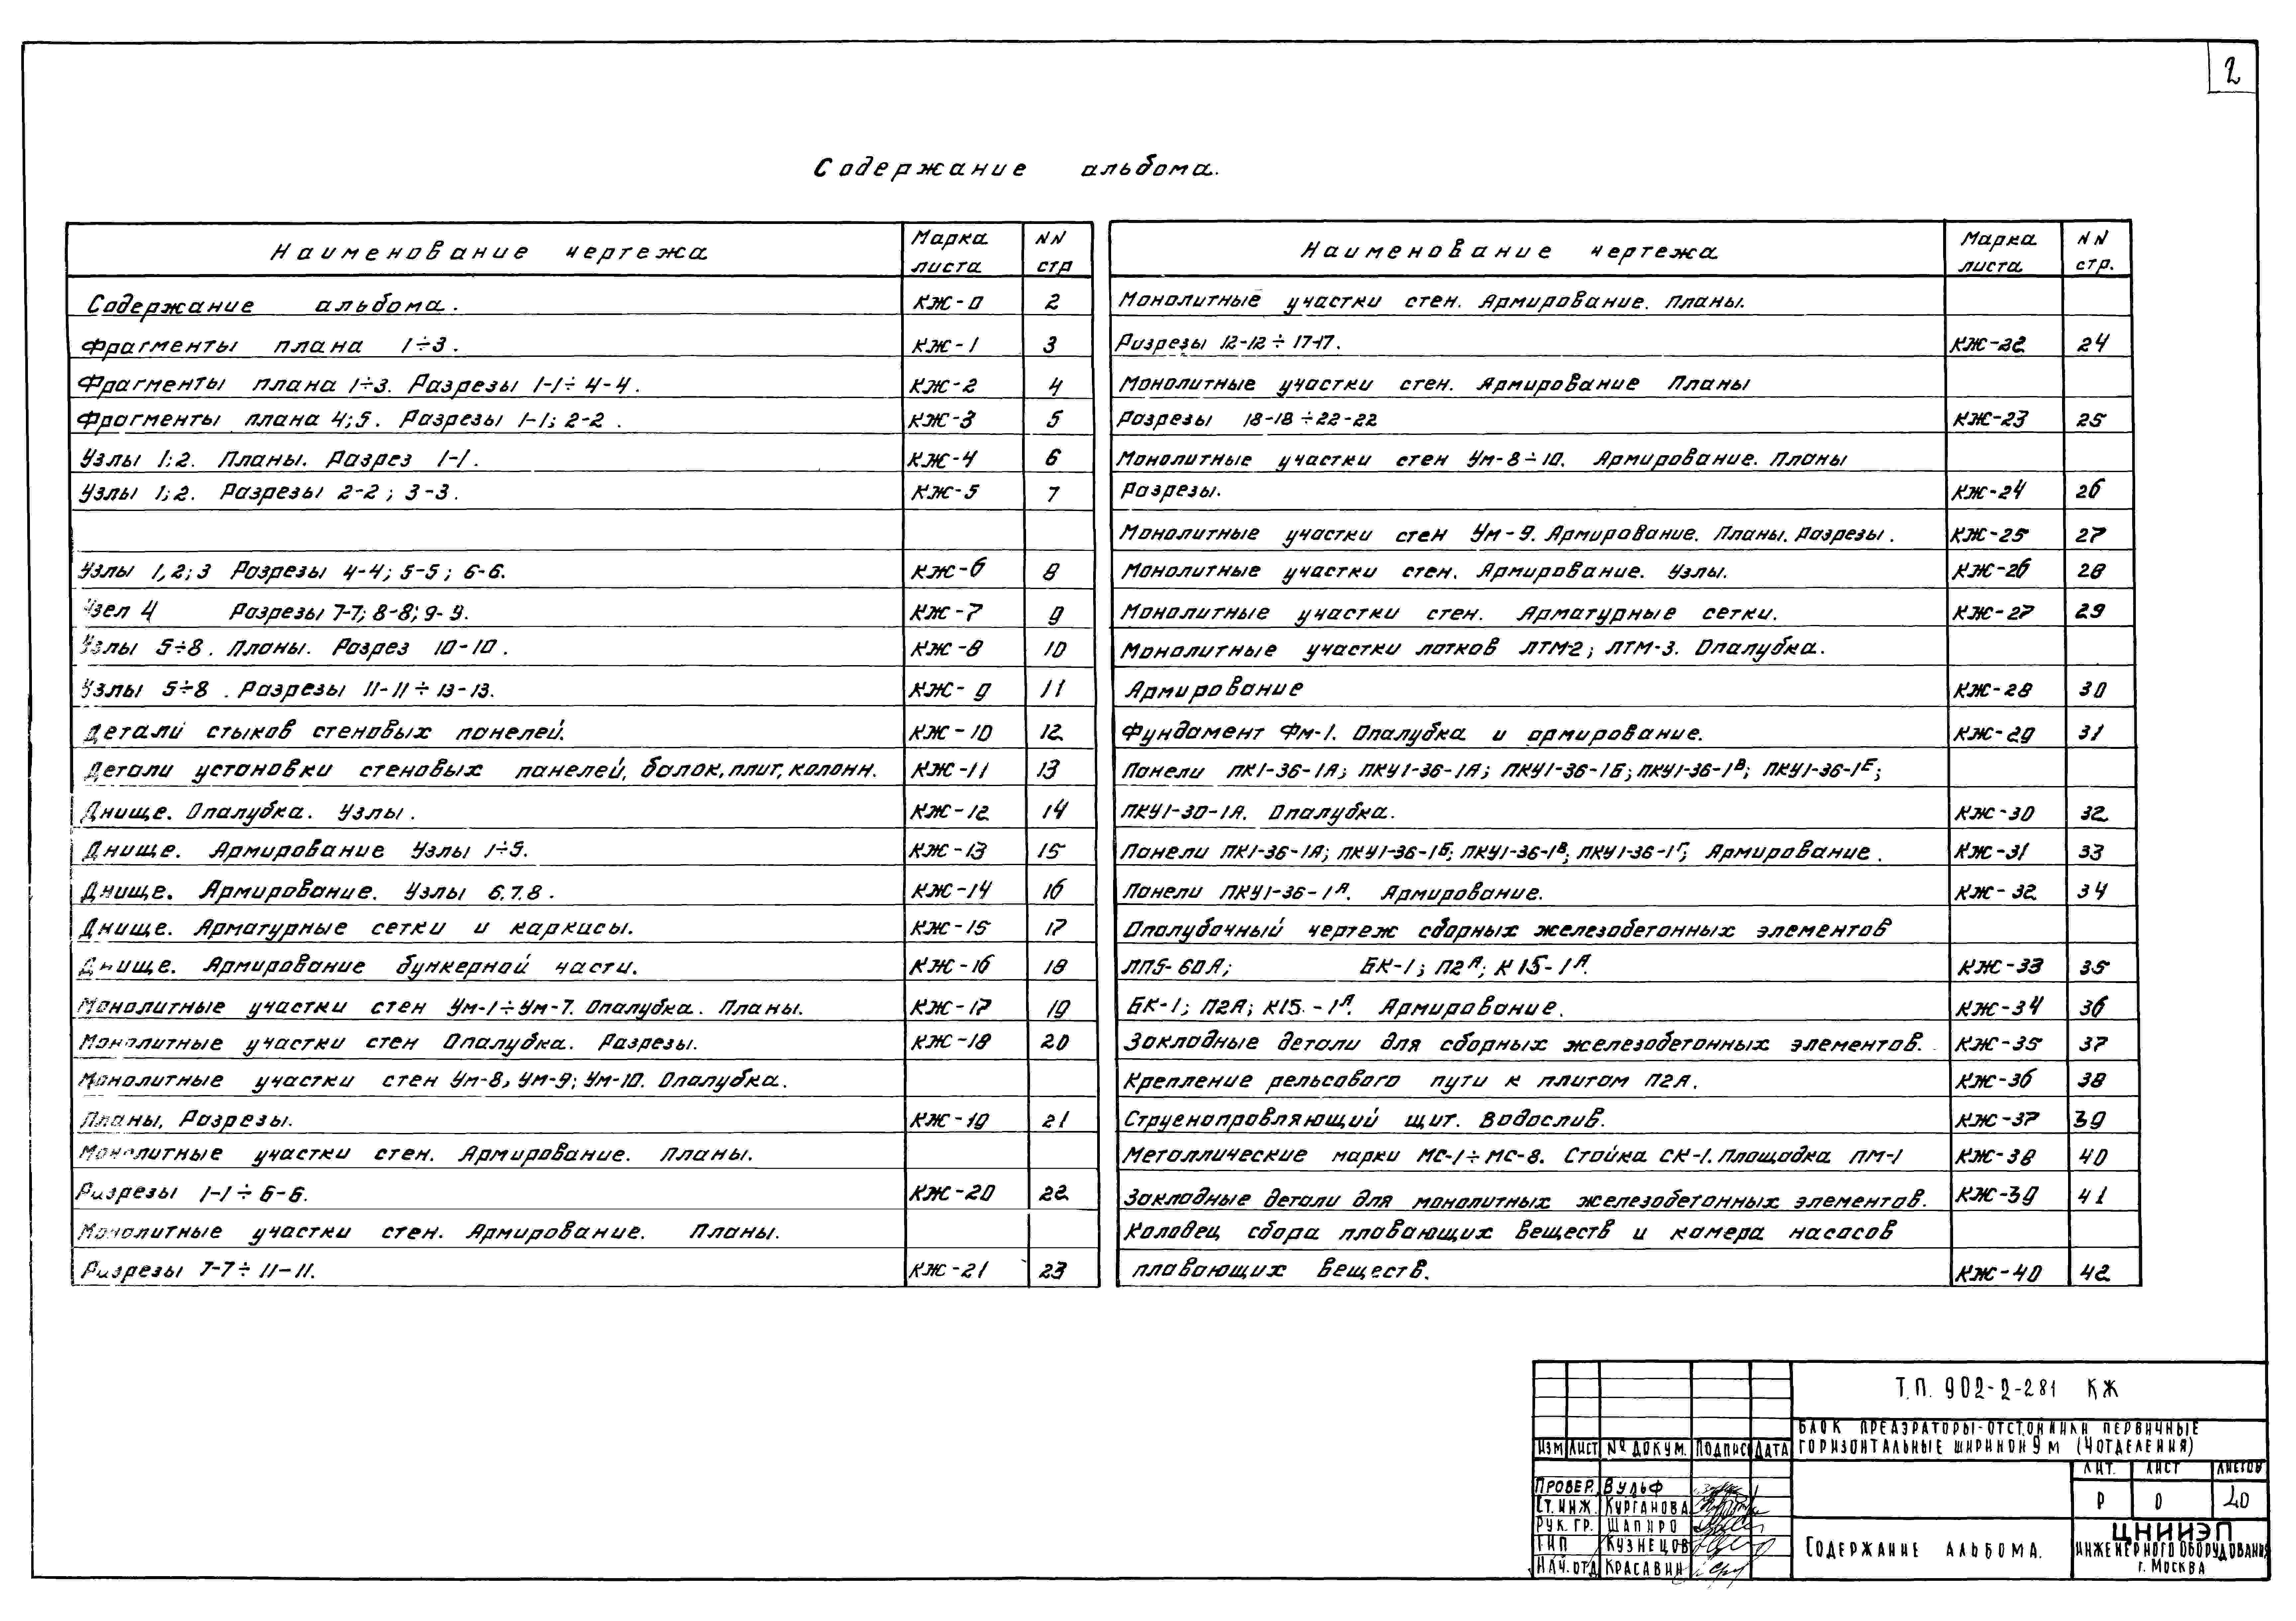 2
Содержание альбома.
Наименование чертежа Марка листа NN стр
Содержание альбома. КЖ-0 2
Фрагменты плана 1÷3. КЖ-1 3
Фрагменты плана 1÷3. Разрезы 1-1÷4-4. КЖ-2 4
Фрагменты плана 4;5. Разрезы 1-1; 2-2. КЖ-3 5
Узлы 1;2. Планы. Разрез 1-1. КЖ-4 6
Узлы 1;2. Разрезы 2-2; 3-3. КЖ-5 7
Узлы 1,2;3 Разрезы 4-4; 5-5; 6-6. КЖ-6 8
Узел 4 Разрезы 7-7; 8-8; 9-9. КЖ-7 9
Узлы 5÷8. Планы. Разрез 10-10. КЖ-8 10
Узлы 5÷8. Разрезы 11-11÷13-13. КЖ-9 11
Детали стыков стеновых панелей. КЖ-10 12
Детали установки стеновых панелей, балок, плит, колонн. КЖ-11 13
Днище. Опалубка. Узлы. КЖ-12 14
Днище. Армирование Узлы 1÷5. КЖ-13 15
Днище. Армирование. Узлы 6.7.8. КЖ-14 16
Днище. Арматурные сетки и каркасы. КЖ-15 17
Днище. Армирование бункерной части. КЖ-16 18
Монолитные участки стен Ум-1÷Ум-7. Опалубка. Планы. КЖ-17 19
Монолитные участки стен Опалубка. Разрезы. КЖ-18 20
Монолитные участки стен Ум-8, Ум-9; Ум-10. Опалубка.
Планы, Разрезы. КЖ-19 21
Монолитные участки стен. Армирование. Планы.
Разрезы 1-1÷6-6. КЖ-20 22
Монолитные участки стен. Армирование. Планы.
Разрезы 7-7÷11-11. КЖ-21 23
Наименование чертежа Марка листа NN стр.
Монолитные участки стен. Армирование. Планы.
Разрезы 12-12÷17-17. КЖ-22 24
Монолитные участки стен. Армирование Планы
Разрезы 18-18÷22-22 КЖ-23 25
Монолитные участки стен Ум-8÷10. Армирование. Планы
Разрезы. КЖ-24 26
Монолитные участки стен Ум-9. Армирование. Планы. Разрезы. КЖ-25 27
Монолитные участки стен. Армирование. Узлы. КЖ-26 28
Монолитные участки стен. Арматурные сетки. КЖ-27 29
Монолитные участки лотков ЛТМ-2; ЛТМ-3. Опалубка.
Армирование КЖ-28 30
Фундамент Фм-1. Опалубка и армирование. КЖ-29 31
Панели ПК1-36-1А; ПКУ1-36-1А; ПКУ1-36-1Б; ПКУ1-36-1В; ПКУ1-36-1Г;
ПКУ1-30-1А. Опалубка. КЖ-30 32
Панели ПК1-36-1А; ПКУ1-36-1Б; ПКУ1-36-1В; ПКУ1-36-1Г; Армирование. КЖ-31 33
Панели ПКУ1-36-1А. Армирование. КЖ-32 34
Опалубочный чертеж сборных железобетонных элементов
ЛП5-60А; БК-1; П2А; К15-1А. КЖ-33 35
БК-1; П2А; К15.-1А. Армирование. КЖ-34 36
Закладные детали для сборных железобетонных элементов. КЖ-35 37
Крепление рельсового пути к плитам П2А. КЖ-36 38
Струенаправляющий щит. Водослив. КЖ-37 39
Металлические марки МС-1÷МС-8. Стойка СК-1. Площадка ПМ-1 КЖ-38 40
Закладные детали для монолитных железобетонных элементов. КЖ-39 41
Колодец сбора плавающих веществ и камера насосов
плавающих веществ. КЖ-40 42
Т.П. 902-2-281 КЖ
Блок преаэраторы-отстойники первичные
горизонтальные шириной 9 м (4 отделения)
Изм Лист № докум. Подпись Дата
Лит. Лист Листов
Р 0 40
Провер. Вульф
Ст. инж. Курганова
Рук. гр. Шапиро
ГИП Кузнецов
Нач. отд Красавин
Содержание альбома.
ЦНИИЭП
инженерного оборудования
г. Москва